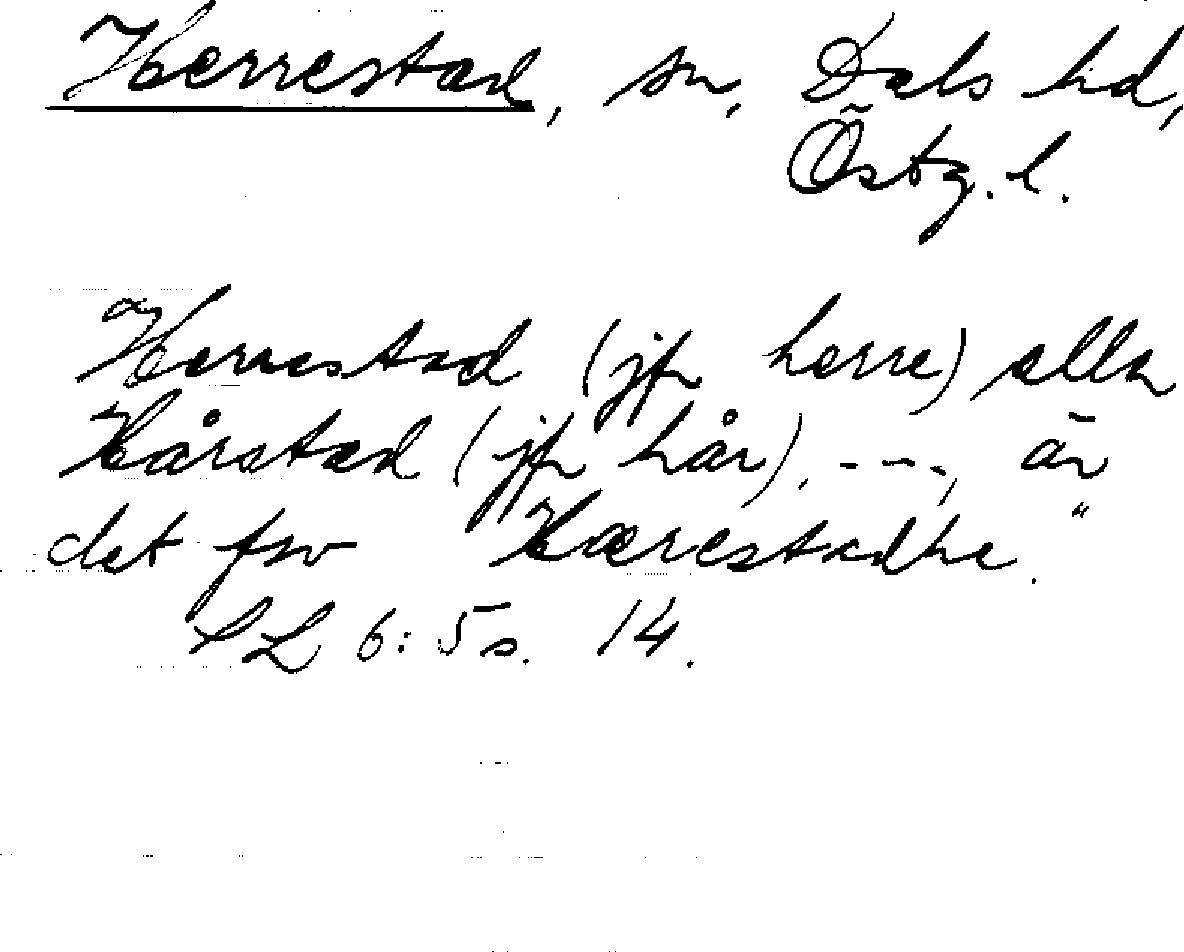 Herrestad, sn, Dals hd,
Östg. l.
Herrestad (jfr herre) eller
Hårstad (jfr hår), ---, är
det fsv Hærestadhe."
SL 6: 5 s. 14.